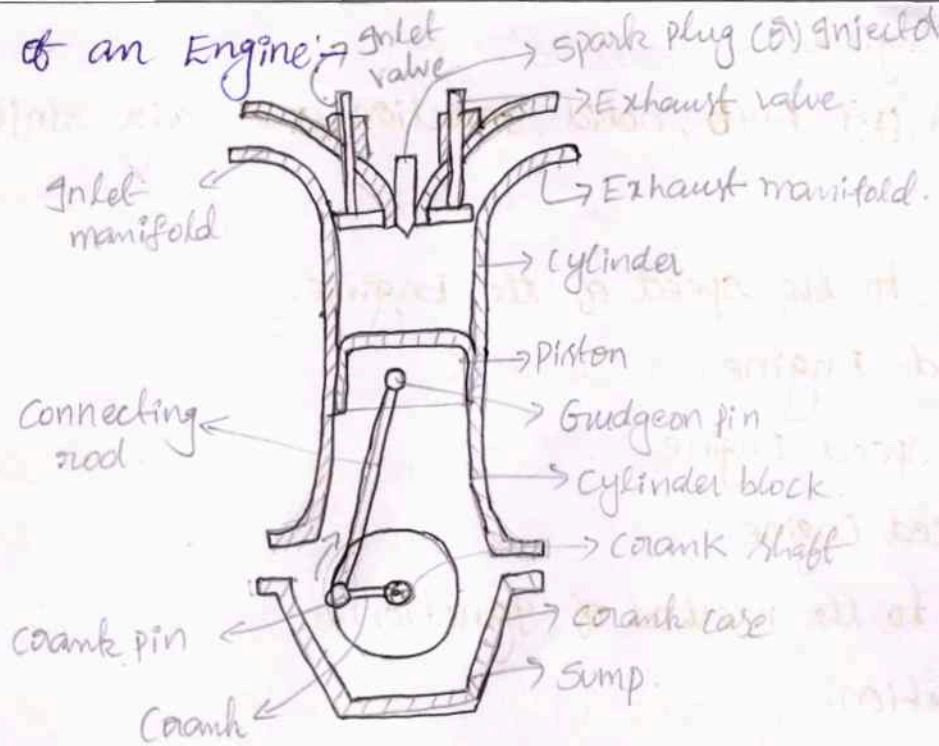 of an Engine:-
Inlet
valve
Spark plug (or) Injector
Exhaust valve
Inlet
manifold
Exhaust manifold.
Cylinder
Piston
Connecting
rod
Grudgeon pin
Cylinder block.
Crank shaft
Crank pin
Crank case
Sump.
Crank